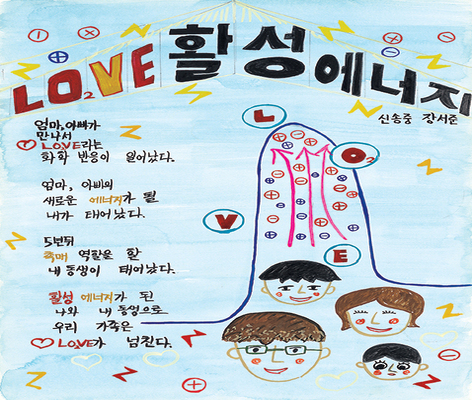 LO₂VE 활성에너지
신송중 장서준
엄마, 아빠가
만나서
♡LOVE라는
화학 반응이 일어났다.
엄마, 아빠의
새로운 에너지가 될
내가 태어났다.
5년뒤
촉매 역할을 할
내 동생이 태어났다.
활성 에너지가 된
나와 내 동생으로
우리 가족은
♡LOVE가 넘친다.
L
O₂
V
E